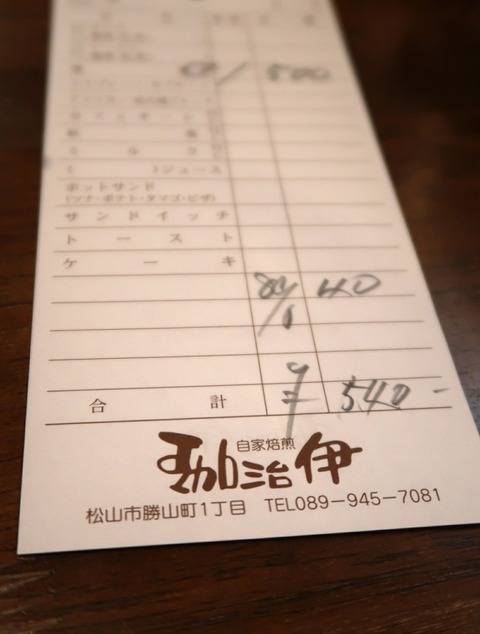 1 500
カフェオーレ
ミルク
( )ジュース
ホットサンド
(ツナ・ポテト・タマゴ・ピザ)
サンドイッチ
トースト
ケーキ
8% 40
合計 ¥ 540-
自家焙煎
珈治伊
松山市勝山町1丁目 TEL089-945-7081